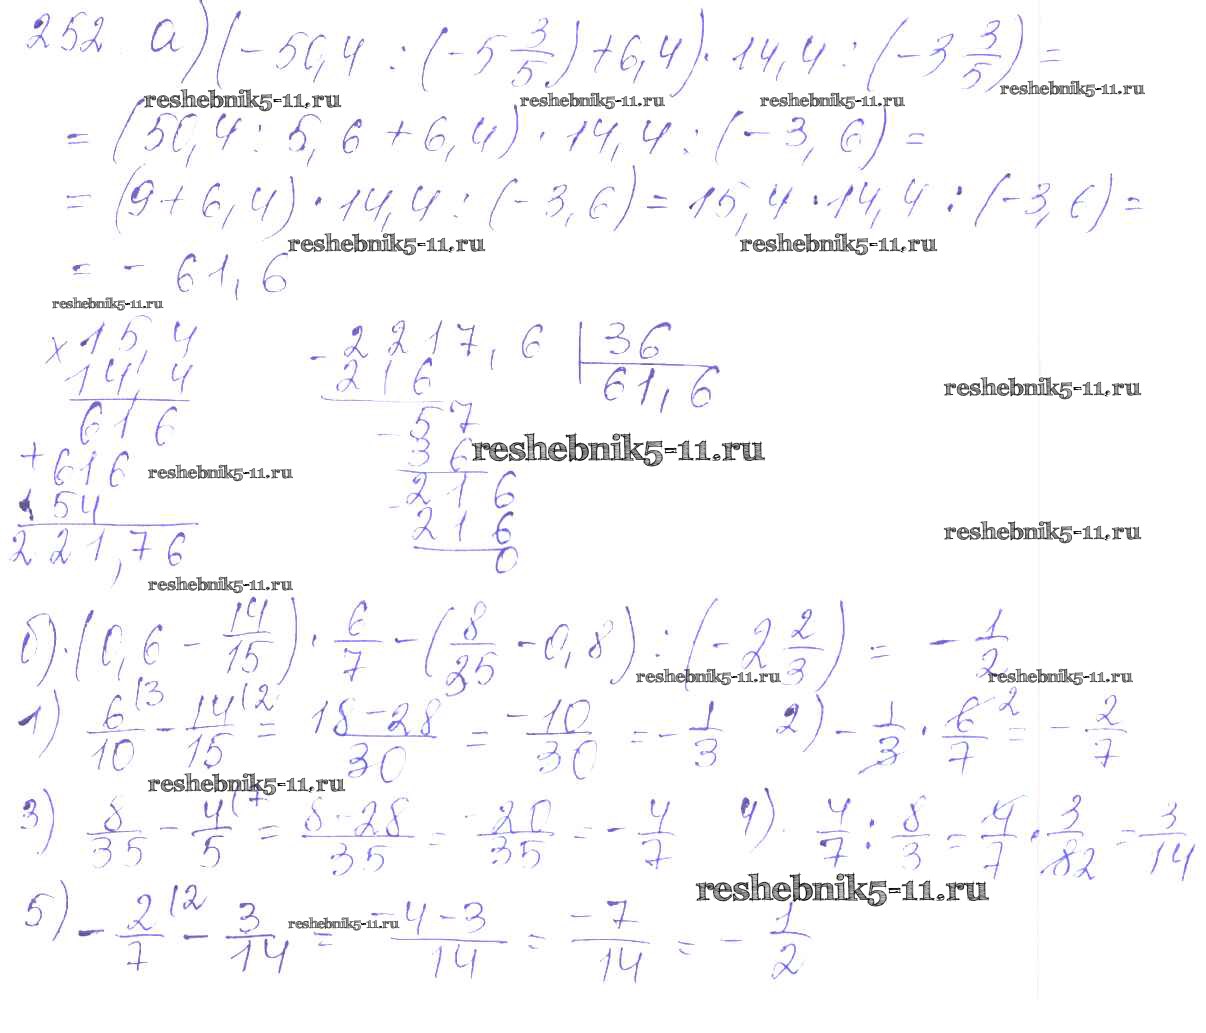 252 а) (-50,4 : (-5 3/5) + 6,4) · 14,4 : (-3 3/5) =
reshebnik5-11.ru reshebnik5-11.ru reshebnik5-11.ru reshebnik5-11.ru
= (50,4 : 5,6 + 6,4) · 14,4 : (-3,6) =
= (9 + 6,4) · 14,4 : (-3,6) = 15,4 · 14,4 : (-3,6) =
reshebnik5-11.ru reshebnik5-11.ru
= - 61,6
reshebnik5-11.ru
× 15,4
14,4
616
+ 616
154
221,76
- 2217,6 | 36
216 61,6
- 57
36
- 216
216
0
reshebnik5-11.ru
reshebnik5-11.ru
reshebnik5-11.ru
reshebnik5-11.ru
reshebnik5-11.ru
б) (0,6 - 14/15) · 6/7 - (8/35 - 0,8) : (-2 2/3) = - 1/2
reshebnik5-11.ru reshebnik5-11.ru
1) 6/10 (3 - 14/15 (2 = 18-28/30 = -10/30 = - 1/3 2) - 1/3 · 6/7 2 = - 2/7
reshebnik5-11.ru
3) 8/35 - 4/5 (7 = 8-28/35 = -20/35 = - 4/7 4) 4/7 : 8/3 = 4/7 · 3/82 = 3/14
reshebnik5-11.ru
5) - 2/7 (2 - 3/14 = -4-3/14 = -7/14 = - 1/2
reshebnik5-11.ru